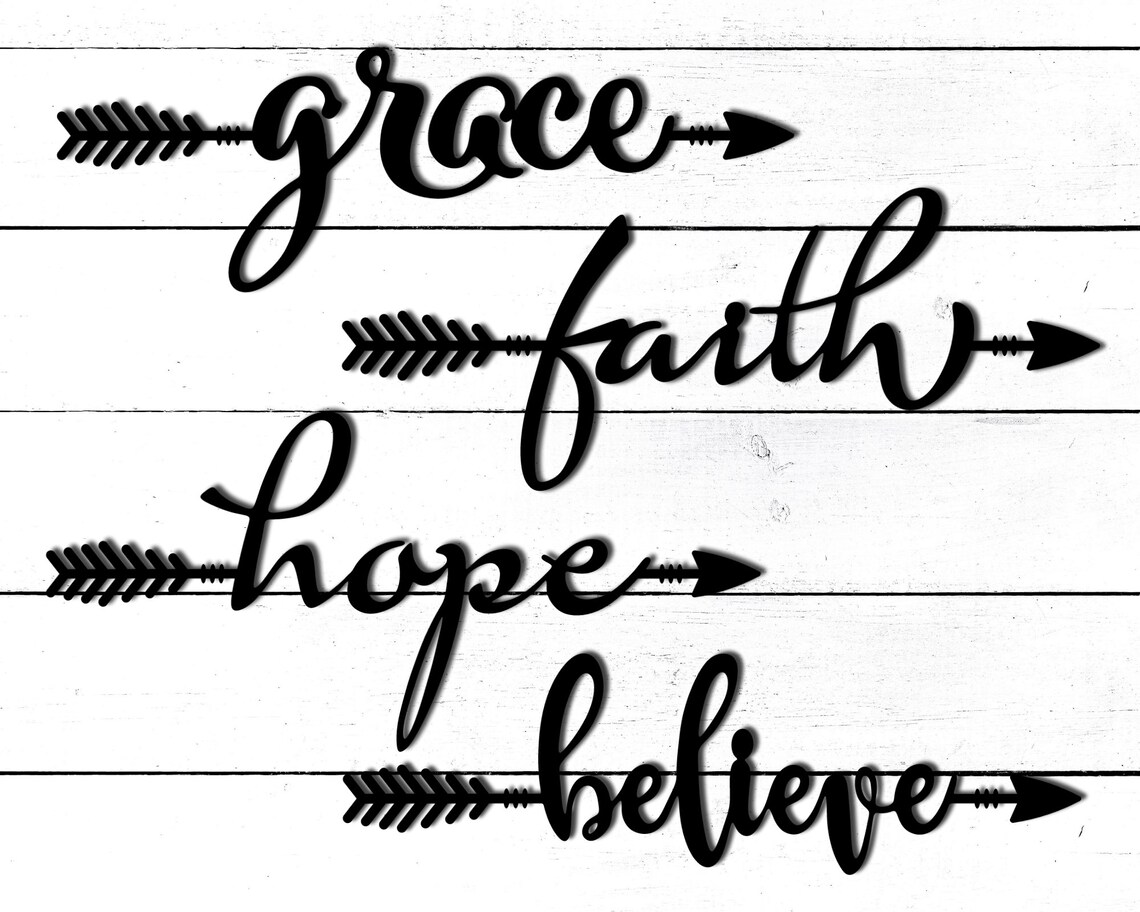 grace
faith
hope
believe